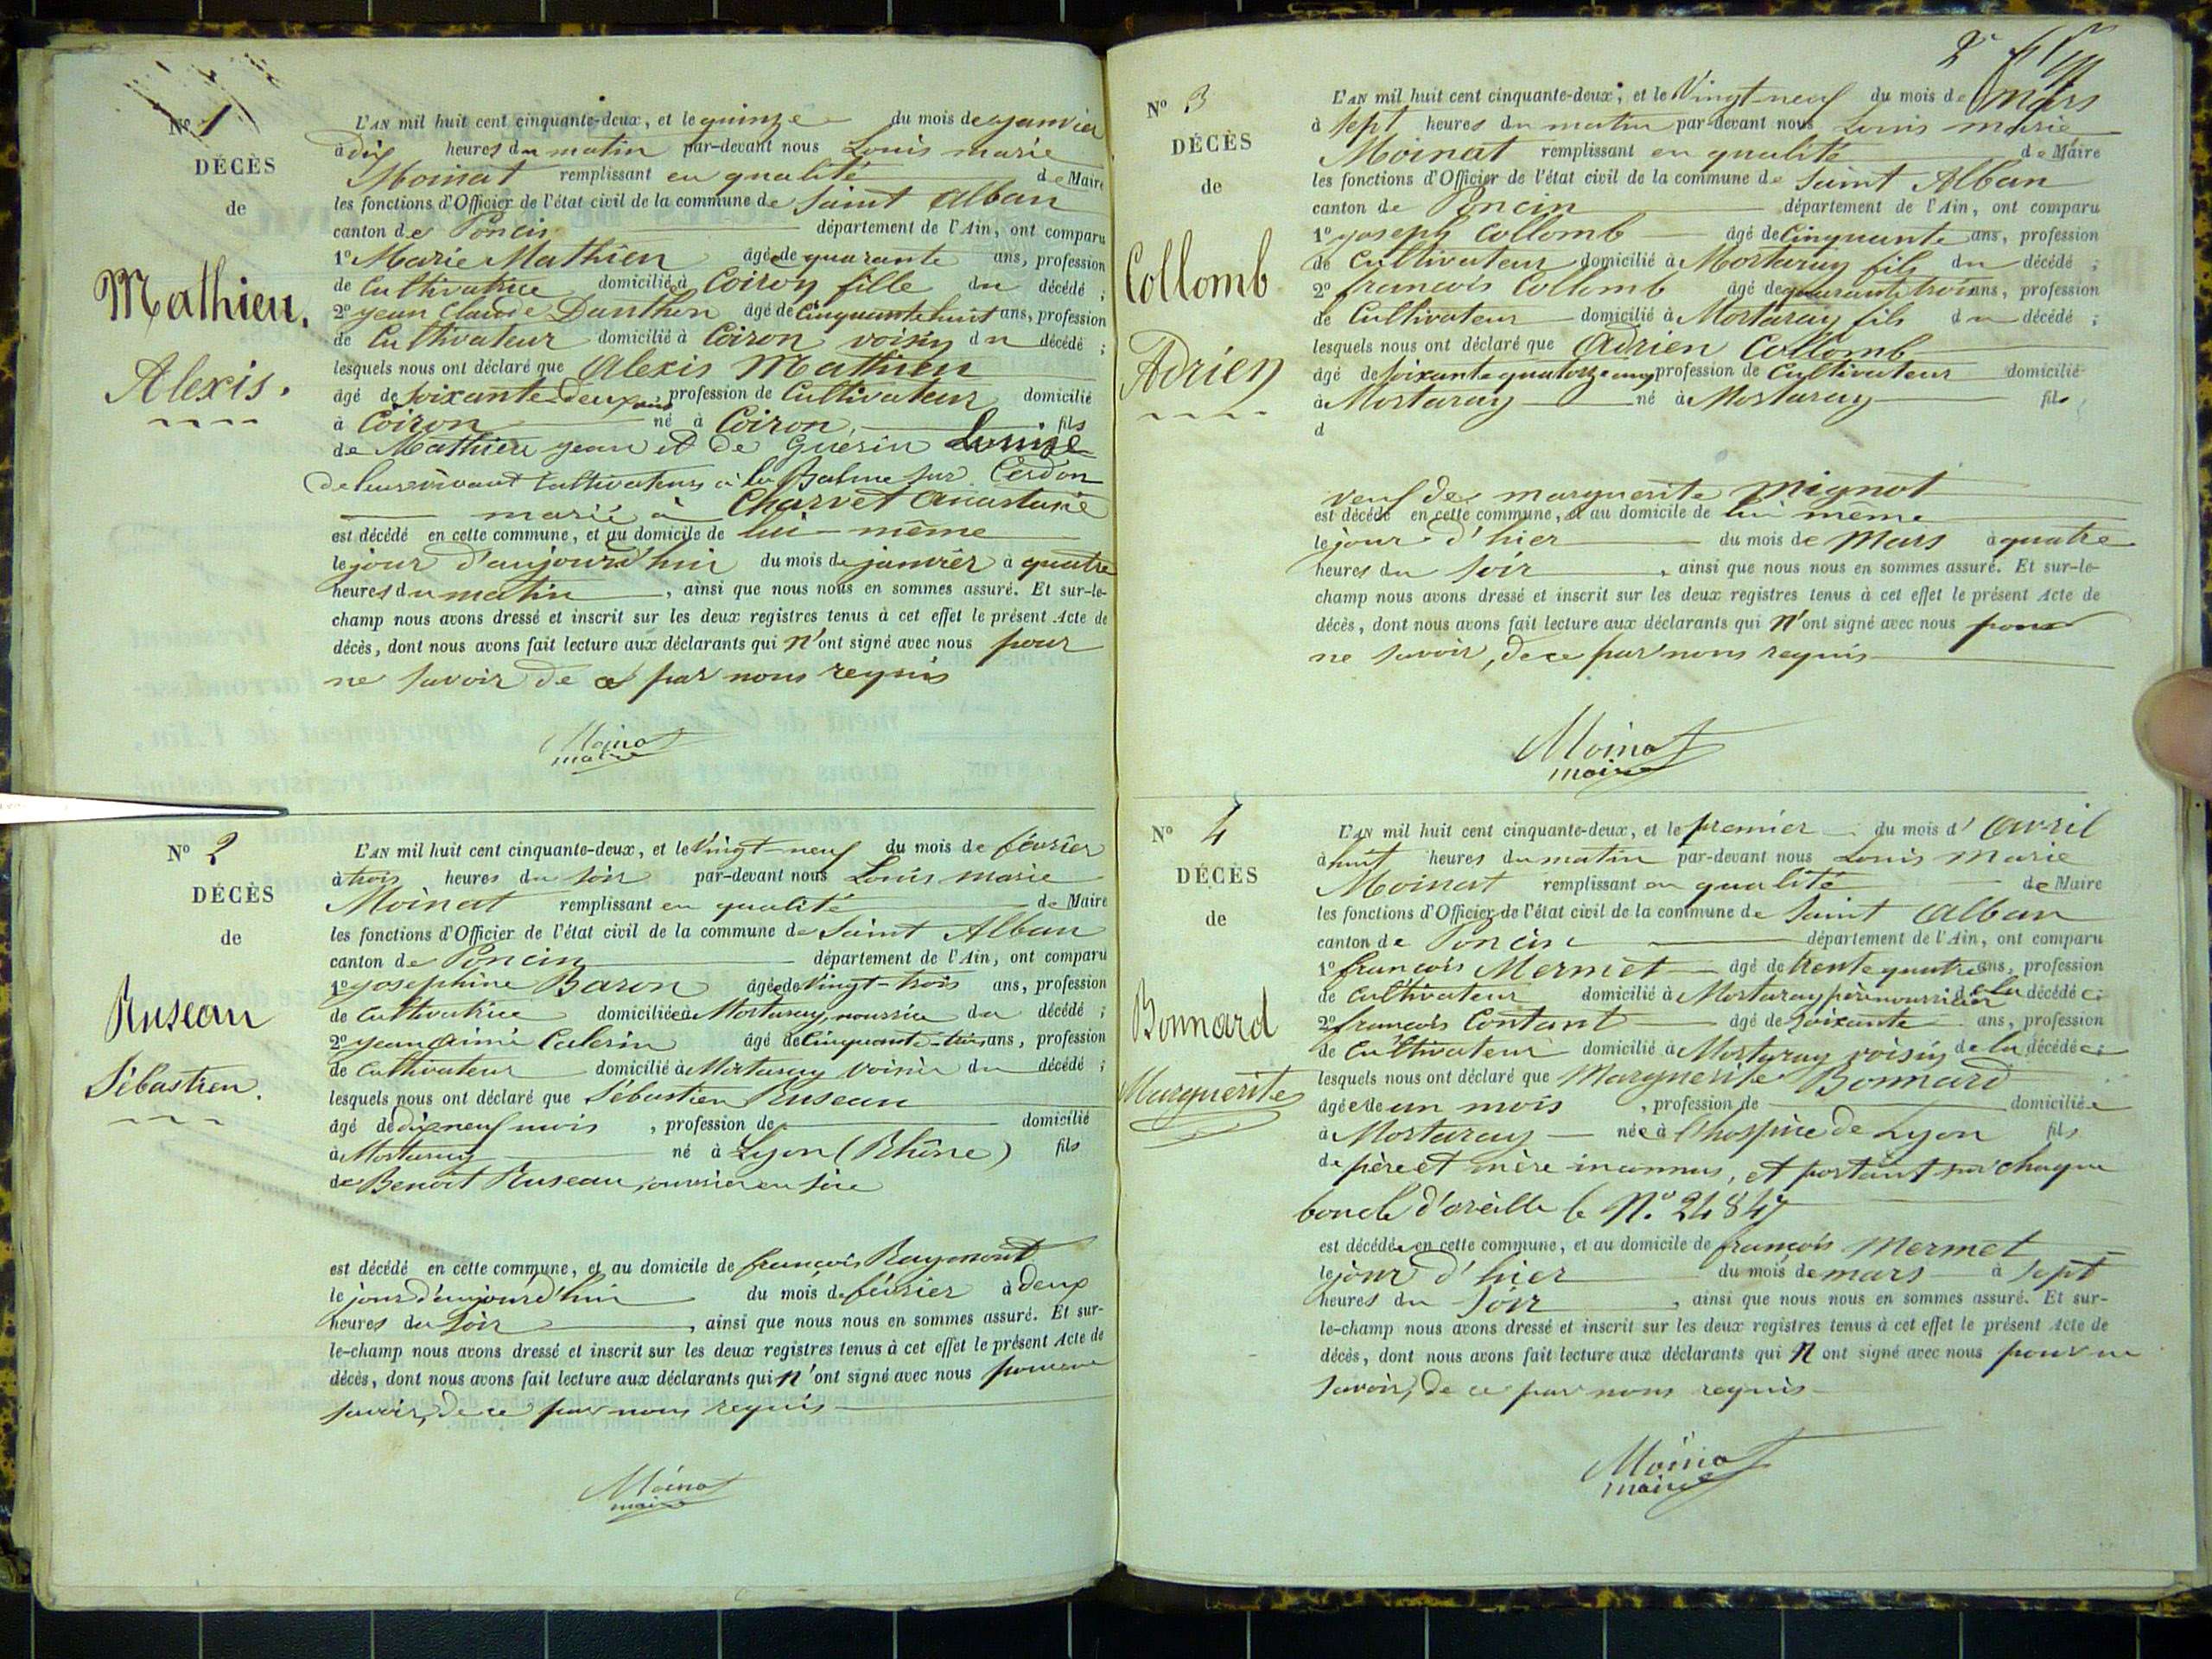 N° 1
DÉCÈS
de
Mathieu.
Alexis.
L'AN mil huit cent cinquante-deux, et le quinze du mois de janvier
à dix heures du matin par-devant nous Louis marie
Moinat remplissant en qualité de Maire
les fonctions d'Officier de l'état civil de la commune de Saint Alban
canton de Poncin département de l'Ain, ont comparu
1° Marie Mathieu âgée de quarante ans, profession
de Cultivatrice domiciliée à Coiron fille du décédé ;
2° jean Claude Danthon âgé de Cinquante huit ans, profession
de Cultivateur domicilié à Coiron voisin du décédé ;
lesquels nous ont déclaré que Alexis Mathieu
âgé de soixante-deux ans profession de Cultivateur domicilié
à Coiron né à Coiron, fils
de Mathieu jean et de Guerin Louise
de leur vivant Cultivateurs à la Balme sur Cerdon
marié à Charvet Anastasie
est décédé en cette commune, et au domicile de lui-même
le jour d'aujourd'hui du mois de janvier à quatre
heures du matin, ainsi que nous nous en sommes assuré. Et sur-le-
champ nous avons dressé et inscrit sur les deux registres tenus à cet effet le présent Acte de
décès, dont nous avons fait lecture aux déclarants qui n'ont signé avec nous pour
ne savoir de ce par nous requis
Moinat
maire
N° 2
DÉCÈS
de
Ruseau
Sébastien.
L'AN mil huit cent cinquante-deux, et le Vingt-neuf du mois de février
à trois heures du soir par-devant nous Louis marie
Moinat remplissant en qualité de Maire
les fonctions d'Officier de l'état civil de la commune de Saint Alban
canton de Poncin département de l'Ain, ont comparu
1° josephine Baron âgée de Vingt-trois ans, profession
de Cultivatrice domiciliée à Mortaray, nourrice du décédé ;
2° jean aimé Calerin âgé de Cinquante-trois ans, profession
de Cultivateur domicilié à Mortaray voisin du décédé ;
lesquels nous ont déclaré que Sébastien Ruseau
âgé de dix neuf mois, profession de domicilié
à Mortaray né à Lyon (Rhône) fils
de Benoit Ruseau, ouvrier en soie
est décédé en cette commune, et au domicile de françois Raymont
le jour d'aujourd'hui du mois de février à deux
heures du soir, ainsi que nous nous en sommes assuré. Et sur-
le-champ nous avons dressé et inscrit sur les deux registres tenus à cet effet le présent Acte de
décès, dont nous avons fait lecture aux déclarants qui n'ont signé avec nous pour ne
savoir, de ce par nous requis
Moinat
maire
2e
N° 3
DÉCÈS
de
Collomb
Adrien
L'AN mil huit cent cinquante-deux, et le Vingt-neuf du mois de Mars
à sept heures du matin par-devant nous Louis marie
Moinat remplissant en qualité de Maire
les fonctions d'Officier de l'état civil de la commune de Saint Alban
canton de Poncin département de l'Ain, ont comparu
1° joseph Collomb âgé de Cinquante ans, profession
de Cultivateur domicilié à Mortaray fils du décédé ;
2° francois Collomb âgé de quarante trois ans, profession
de Cultivateur domicilié à Mortaray fils du décédé ;
lesquels nous ont déclaré que Adrien Collomb
âgé de soixante quatorze ans profession de Cultivateur domicilié
à Mortaray né à Mortaray fils
d
veuf de marguerite mignot
est décédé en cette commune, et au domicile de lui même
le jour d'hier du mois de Mars à quatre
heures du soir, ainsi que nous nous en sommes assuré. Et sur-le-
champ nous avons dressé et inscrit sur les deux registres tenus à cet effet le présent Acte de
décès, dont nous avons fait lecture aux déclarants qui n'ont signé avec nous pour
ne savoir, de ce par nous requis
Moinat
maire
N° 4
DÉCÈS
de
Bonnard
Marguerite
L'AN mil huit cent cinquante-deux, et le premier du mois d'avril
à huit heures du matin par-devant nous Louis Marie
Moinat remplissant en qualité de Maire
les fonctions d'Officier de l'état civil de la commune de Saint Alban
canton de Poncin département de l'Ain, ont comparu
1° françois Mermet âgé de trente quatre ans, profession
de Cultivateur domicilié à Mortaray père nourricier de la décédée ;
2° françois Contant âgé de soixante ans, profession
de Cultivateur domicilié à Mortaray voisin de la décédée ;
lesquels nous ont déclaré que Marguerite Bonnard
âgée de un mois, profession de domiciliée
à Mortaray née à l'hospice de Lyon fils
de père et mère inconnus, et portant sur chaque
boucle d'oreille le N° 24847
est décédée en cette commune, et au domicile de françois Mermet
le jour d'hier du mois de mars à sept
heures du soir, ainsi que nous nous en sommes assuré. Et sur-
le-champ nous avons dressé et inscrit sur les deux registres tenus à cet effet le présent Acte de
décès, dont nous avons fait lecture aux déclarants qui n'ont signé avec nous pour ne
savoir, de ce par nous requis
Moinat
maire